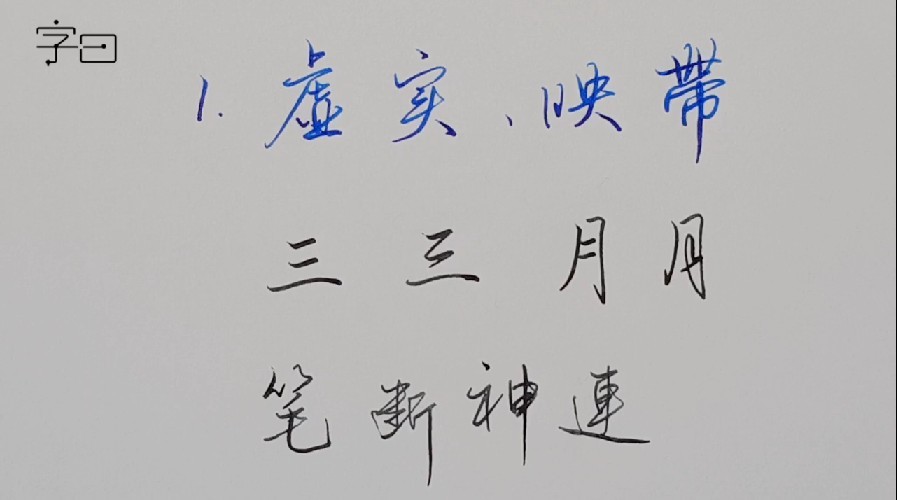 字曰
1. 虚实、映带
三 三 月 月
笔断神連